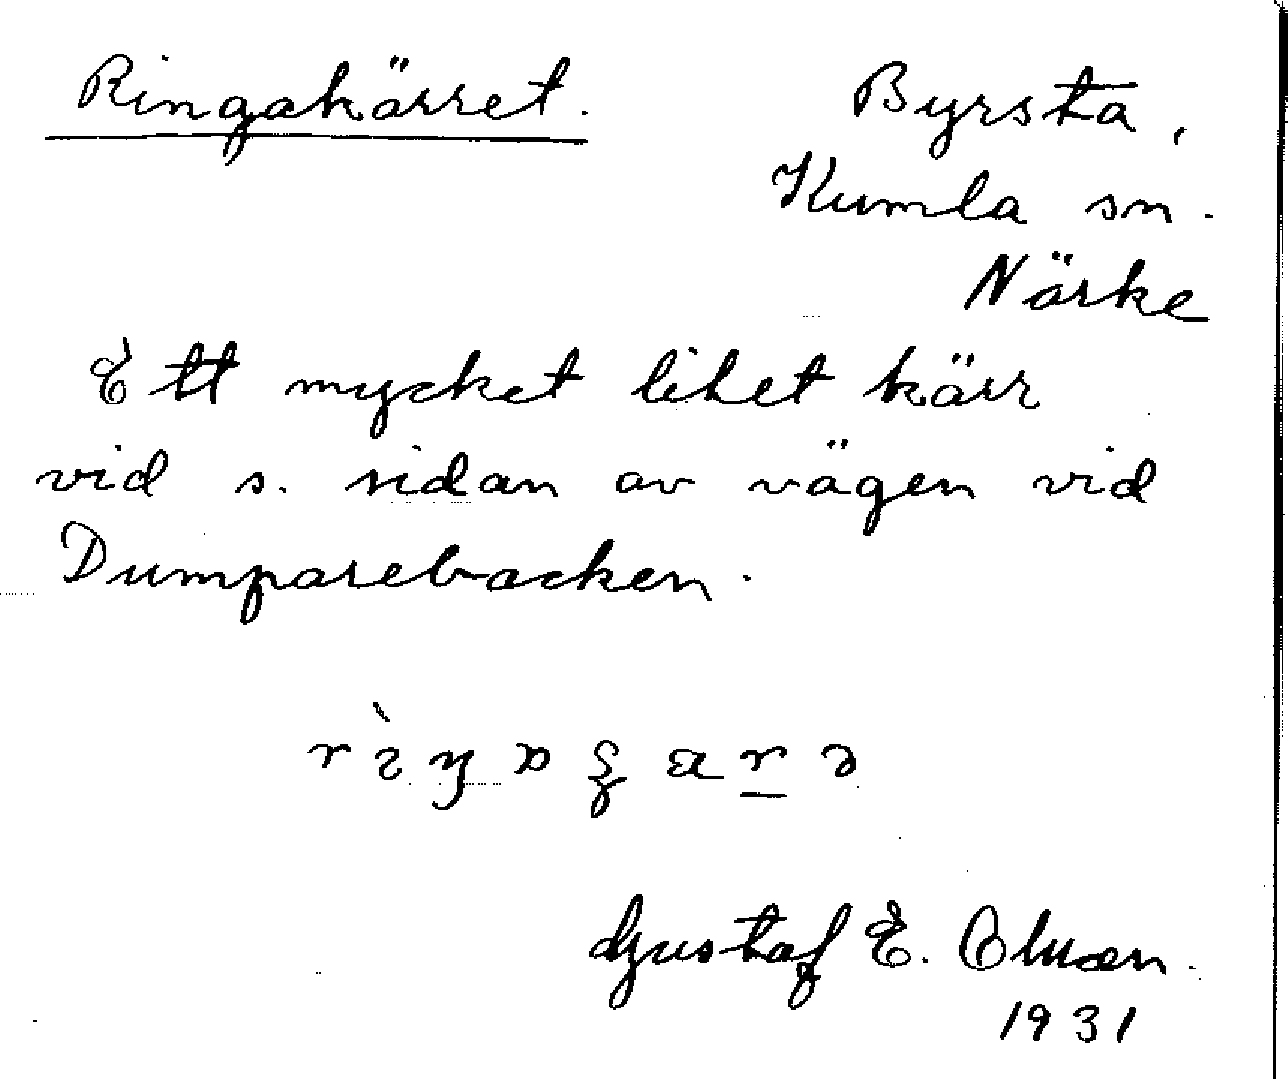 Ringakärret.
Byrsta,
Kumla sn.
Närke
Ett mycket litet kärr
vid s. sidan av vägen vid
Dumparebacken.
Gustaf E.
1931